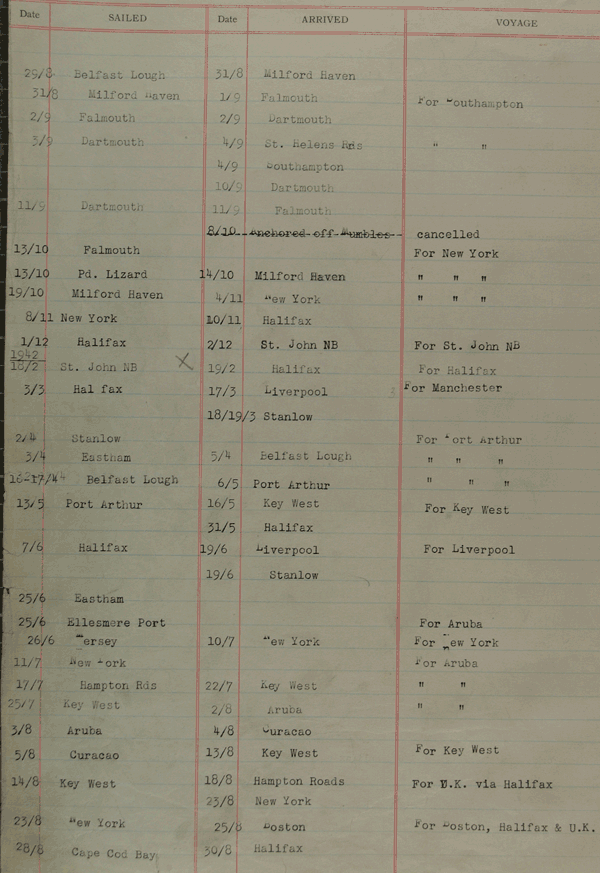 Date SAILED Date ARRIVED VOYAGE
29/8 Belfast Lough 31/8 Milford Haven
31/8 Milford Haven 1/9 Falmouth For Southampton
2/9 Falmouth 2/9 Dartmouth
3/9 Dartmouth 4/9 St. Helens Rds " "
4/9 Southampton
10/9 Dartmouth
11/9 Dartmouth 11/9 Falmouth
8/10 Anchored off Mumbles cancelled
13/10 Falmouth For New York
13/10 Pd. Lizard 14/10 Milford Haven " " "
19/10 Milford Haven 4/11 New York " " "
8/11 New York 10/11 Halifax
1/12 Halifax 2/12 St. John NB For St. John NB
1942
18/2 St. John NB X 19/2 Halifax For Halifax
3/3 Hal fax 17/3 Liverpool For Manchester
18/19/3 Stanlow
2/4 Stanlow For Port Arthur
3/4 Eastham 5/4 Belfast Lough " " "
16-17/4 Belfast Lough 6/5 Port Arthur " " "
13/5 Port Arthur 16/5 Key West For Key West
31/5 Halifax
7/6 Halifax 19/6 Liverpool For Liverpool
19/6 Stanlow
25/6 Eastham
25/6 Ellesmere Port For Aruba
26/6 Mersey 10/7 New York For New York
11/7 New York For Aruba
17/7 Hampton Rds 22/7 Key West " "
25/7 Key West 2/8 Aruba " "
3/8 Aruba 4/8 Curacao
5/8 Curacao 13/8 Key West For Key West
14/8 Key West 18/8 Hampton Roads For U.K. via Halifax
23/8 New York
23/8 New York 25/8 Boston For Boston, Halifax & U.K.
28/8 Cape Cod Bay 30/8 Halifax